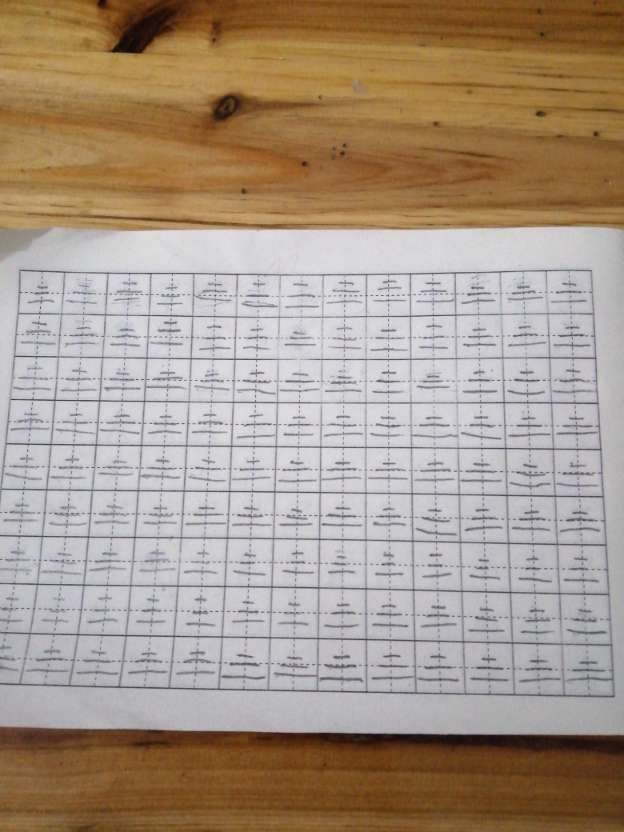 三三三三三三三三三三三三三
三三三三三三三三三三三三三
三三三三三三三三三三三三三
三三三三三三三三三三三三三
三三三三三三三三三三三三三
三三三三三三三三三三三三三
三三三三三三三三三三三三三
三三三三三三三三三三三三三
三三三三三三三三三三三三三